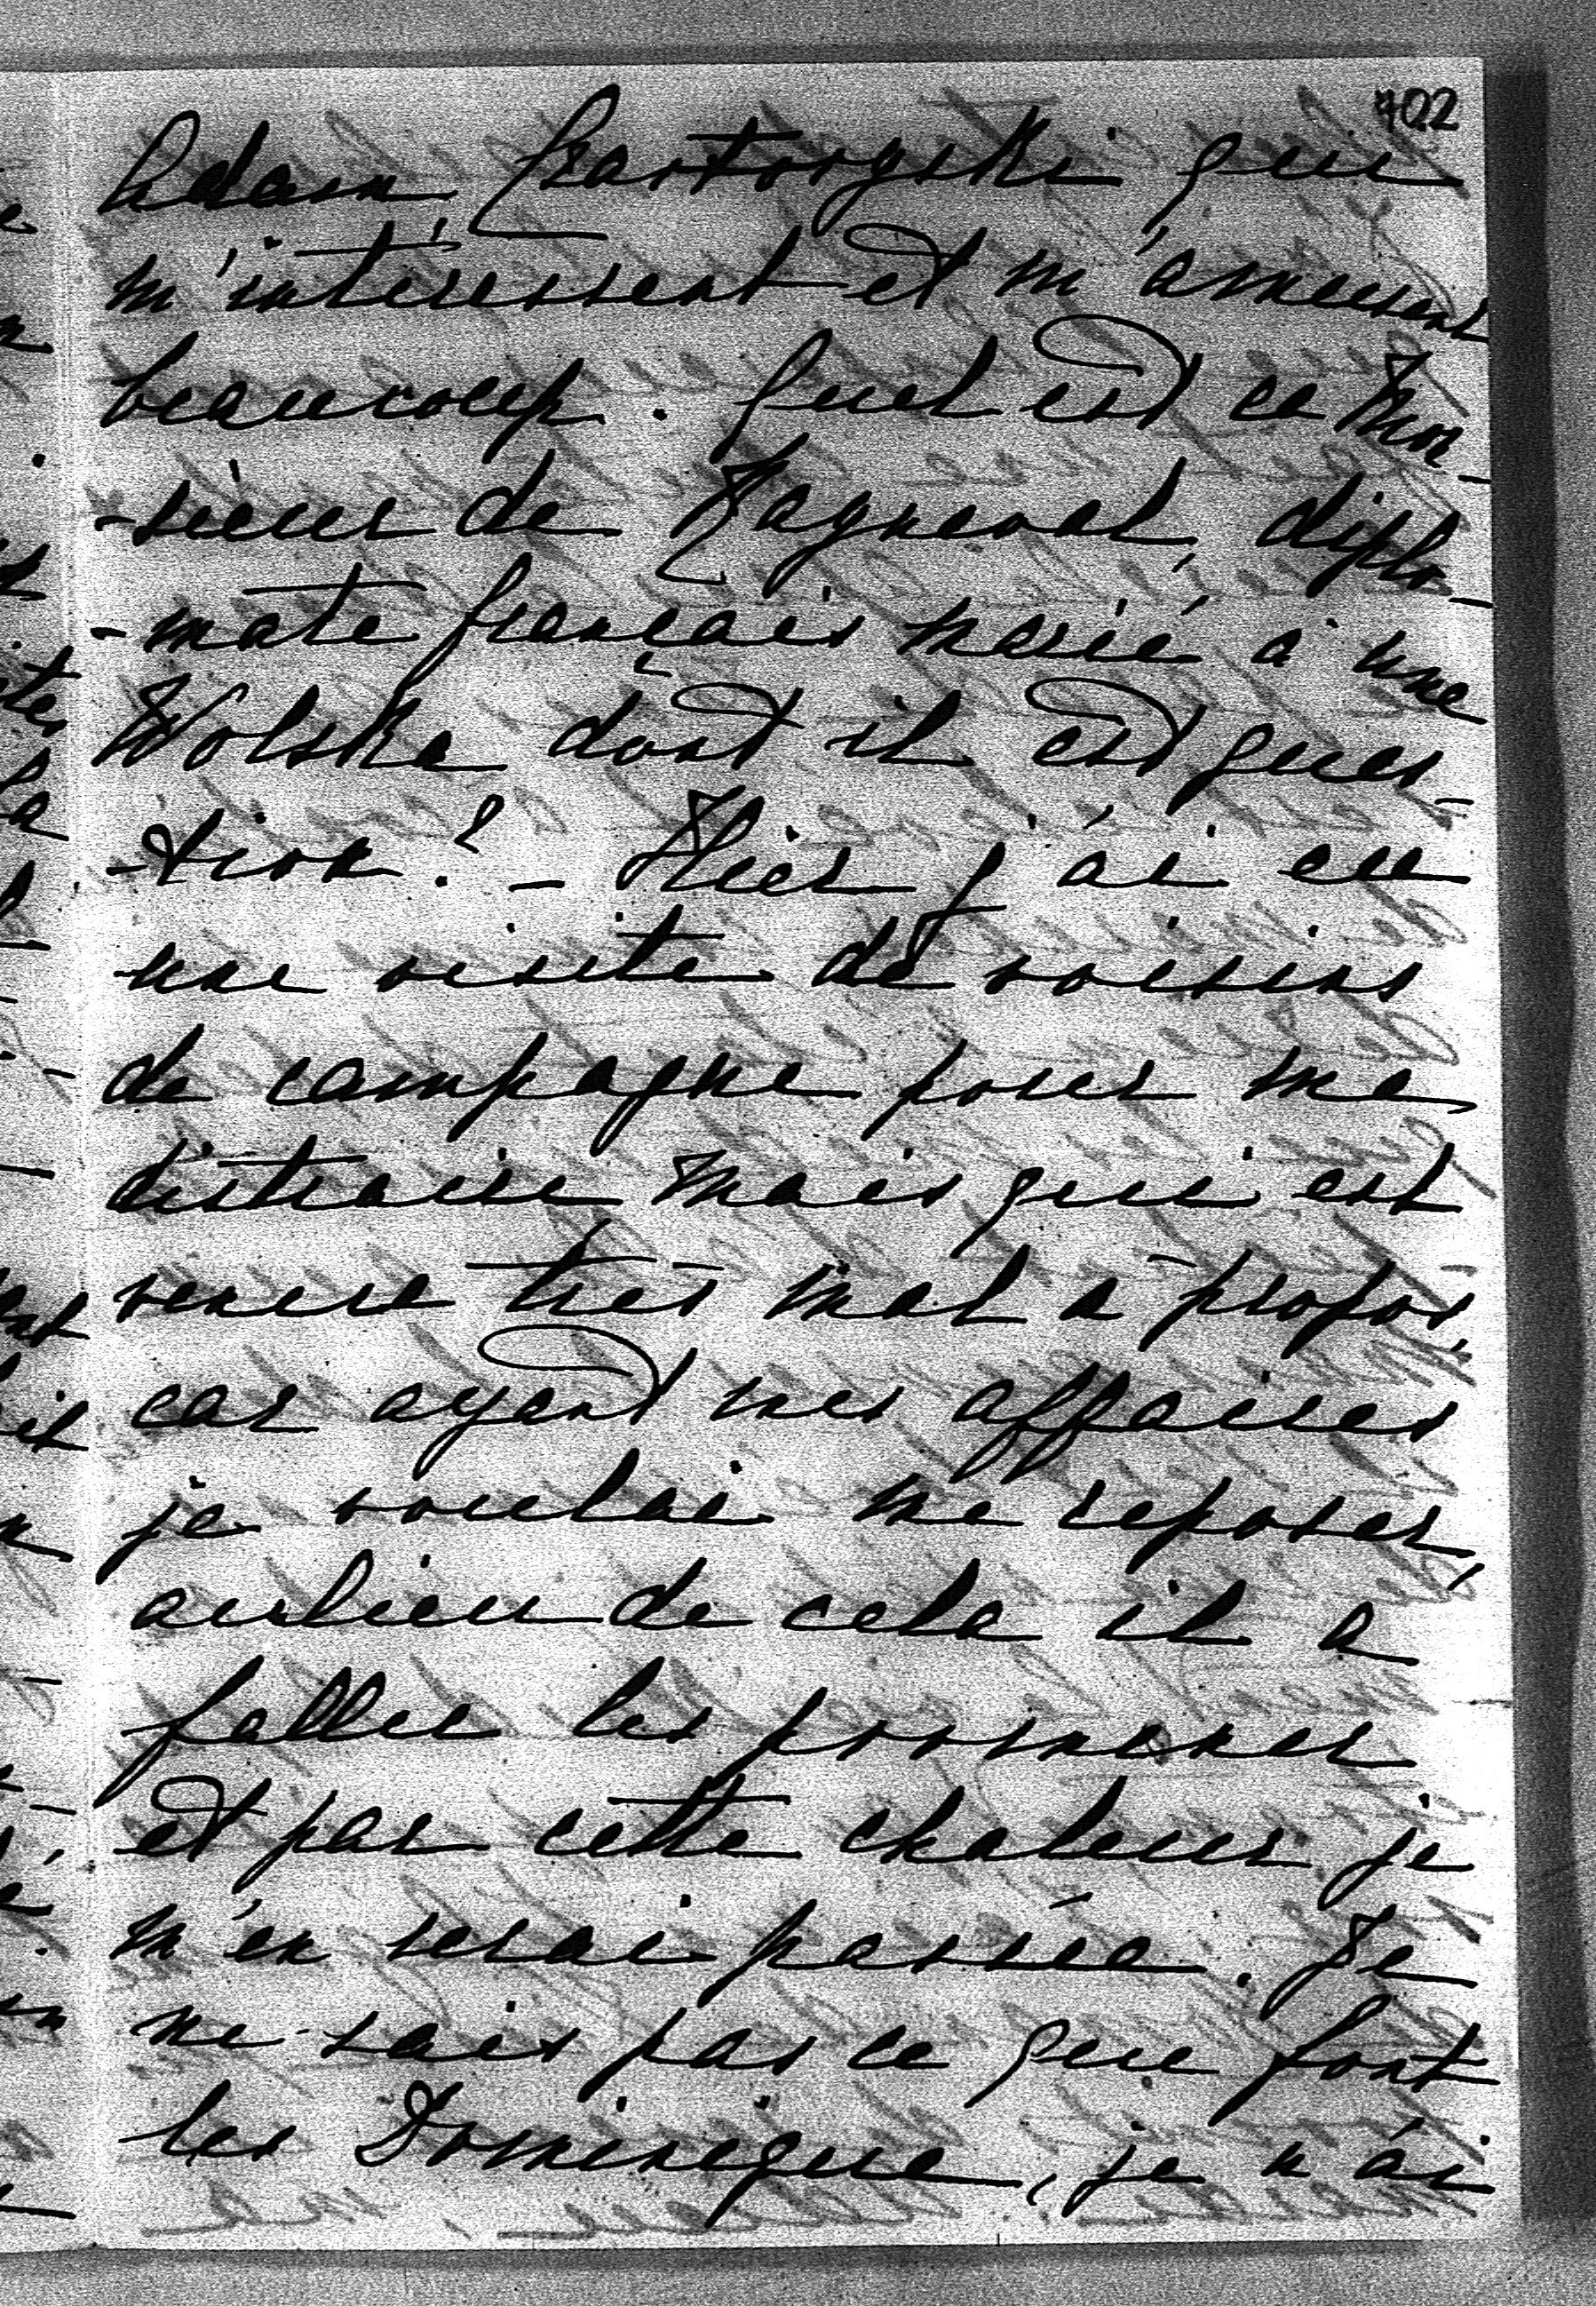 702
Adam Czartoryski qui
m'intéressent et m'amusent
beaucoup. Quel est ce Mon-
-sieur de Fagneval, diplo-
-mate français marié à une
Wolska dont il est ques-
-tion? - Hier j'ai eu
une visite de voisins
de campagne pour me
distraire mais qui est
venue très mal à propos,
car ayant mes affaires
je voulai me reposer,
aulieu de cela il a
fallu les promener
et par cette chaleur je
m'en serai passée. Je
ne sais pas ce que font
les Dominique, je n'ai